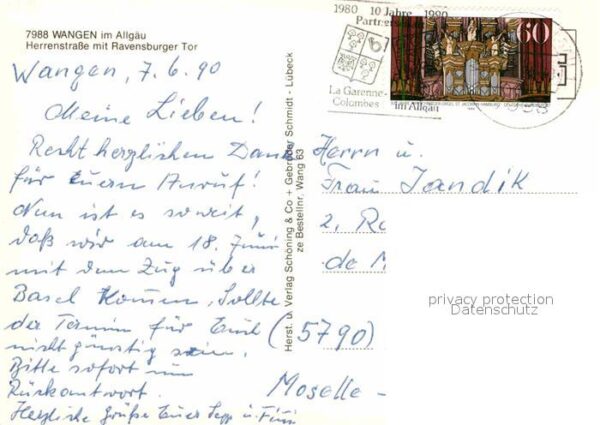 7988 WANGEN im Allgäu
Herrenstraße mit Ravensburger Tor
Wangen, 7.6.90
Meine Lieben!
Recht herzlichen Dank
für Euern Anruf!
Nun ist es soweit,
daß wir am 18. Juni
mit dem Zug über
Basel kommen, Sollte
der Termin für Euch
nicht günstig sein,
Bitte sofort um
Rückantwort.
Herzliche Grüße Euer Sepp u.
Herst. u. Verlag Schöning & Co + Gebrüder Schmidt - Lübeck
ze Bestellnr. Wang 63
1980 10 Jahre 1990
La Garenne-
Colombes
im Allgäu
60
Herrn u.
Frau Jandik
2, R
de M
(5790)
Moselle -
privacy protection
Datenschutz